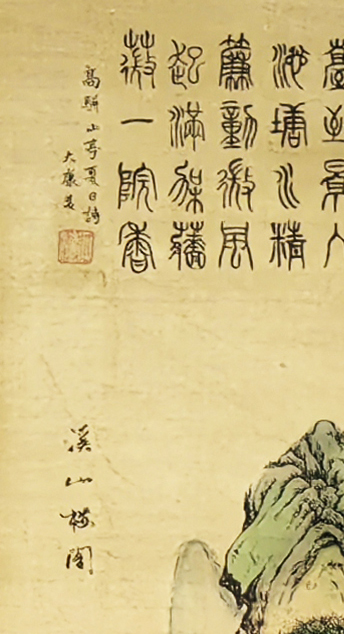 臺倒景入
池塘水精
簾動微風
起滿架薔
薇一院香
高駢山亭夏日詩
大廉
溪山樓閣